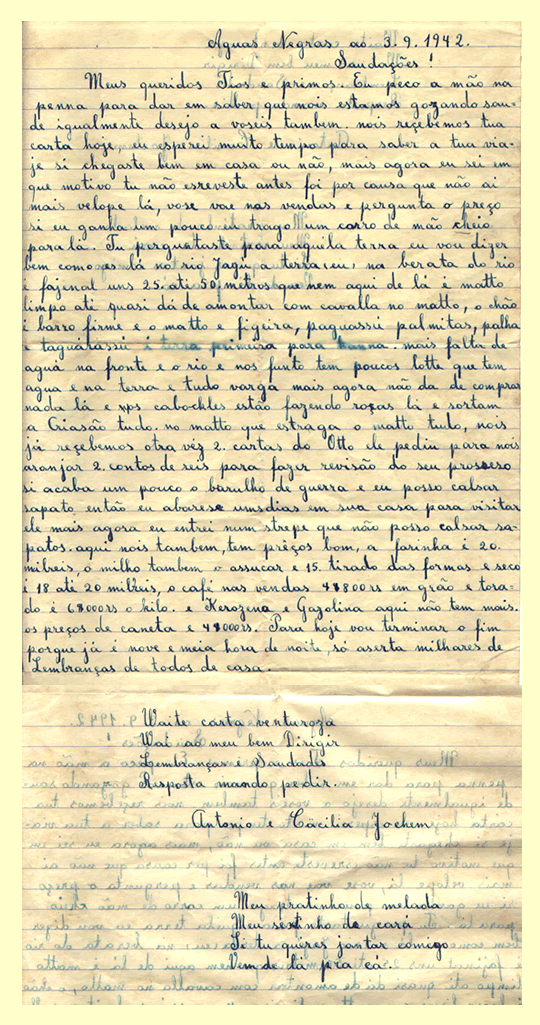 Aguas Negras ao 3.9.1942.
Saudações!
Meus queridos Tios e primos. Eu peco a mão na
penna para dar em saber que nois estamos gozando sau-
de igualmente desejo a voseis tambem, nois reçebemos tua
carta hoje, eu esperei muito tempo para saber a tua via-
je si chegaste bem em casa ou não, mais agora eu sei em
que motivo tu não esreveste antes foi por causa que não ai
mais velope lá, vose vae nas vendas e pergunta o preço
si eu ganha um pouco eu trago um carro de mão cheio
para lá. Tu perguntaste para aquila terra eu vou dizer
bem como es lá no rio Jagú, a terra, eu, na berata do rio
é fajenal uns 25. até 50, metros que nem aqui de lá é matto
limpo até quasi dá de amontar com cavalla no matto, o chão
é barro firme e o matto e figeira, paguassú palmitas, palha
e taguarassú é terra primeira para kanna. mais falta de
agua na fronte e o rio e nos funto tem poucos lotte que tem
agua e na terra e tudo varga mais agora não da de comprar
nada lá e nos cabockles estão fazendo roças lá e sortam
a Criasão tudo. no matto que estraga o matto tudo, nois
já reçebemos otra véz 2. cartas do Otto ele pediu para nois
aronjar 2. contos de reis para fazer revisão do seu prosseso
si acaba um pouco o barulho de guerra e eu posso calsar
sapato, então eu abarese umsdias em sua casa para visitar
ele mais agora eu entrei num strepe que não posso calsar sa-
patos. aqui nois tambem, tem prêços bom, a farinha é 20.
milreis, o milho tambem o assucar e 15. tirado das formas e seco
é 18 até 20 milreis, o café nas vendas 4$800rs em grão e tora-
do é 6$000rs o kilo. e Kerozena e Gazolina aqui não tem mais.
os preços de caneta e 4$000rs. Para hoje vou terminar o fim
porque já é nove e meia hora de noite, só aserta milhares de
Lembranças de todos de casa.
Waite carta venturoza
Wai ao meu bem Dirigir
Lembranças e Saudades
Risposta mando pedir.
Antonio e Cäcilia Jochem
Meu pratinho de melada
Meu sestinho de cará
Si tu quéres jantar comigo
Vem de lá pra cá.